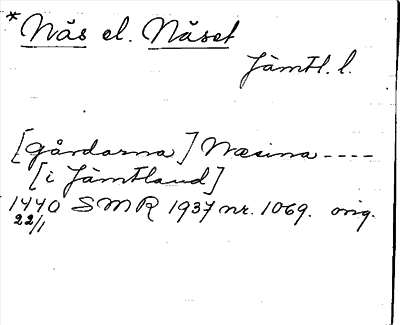 * Näs el. Näset
Jämtl. l.
[gårdarna] Næsina ----
[i Jämtland]
1440 SMR 1937 nr. 1069. orig.
22/1